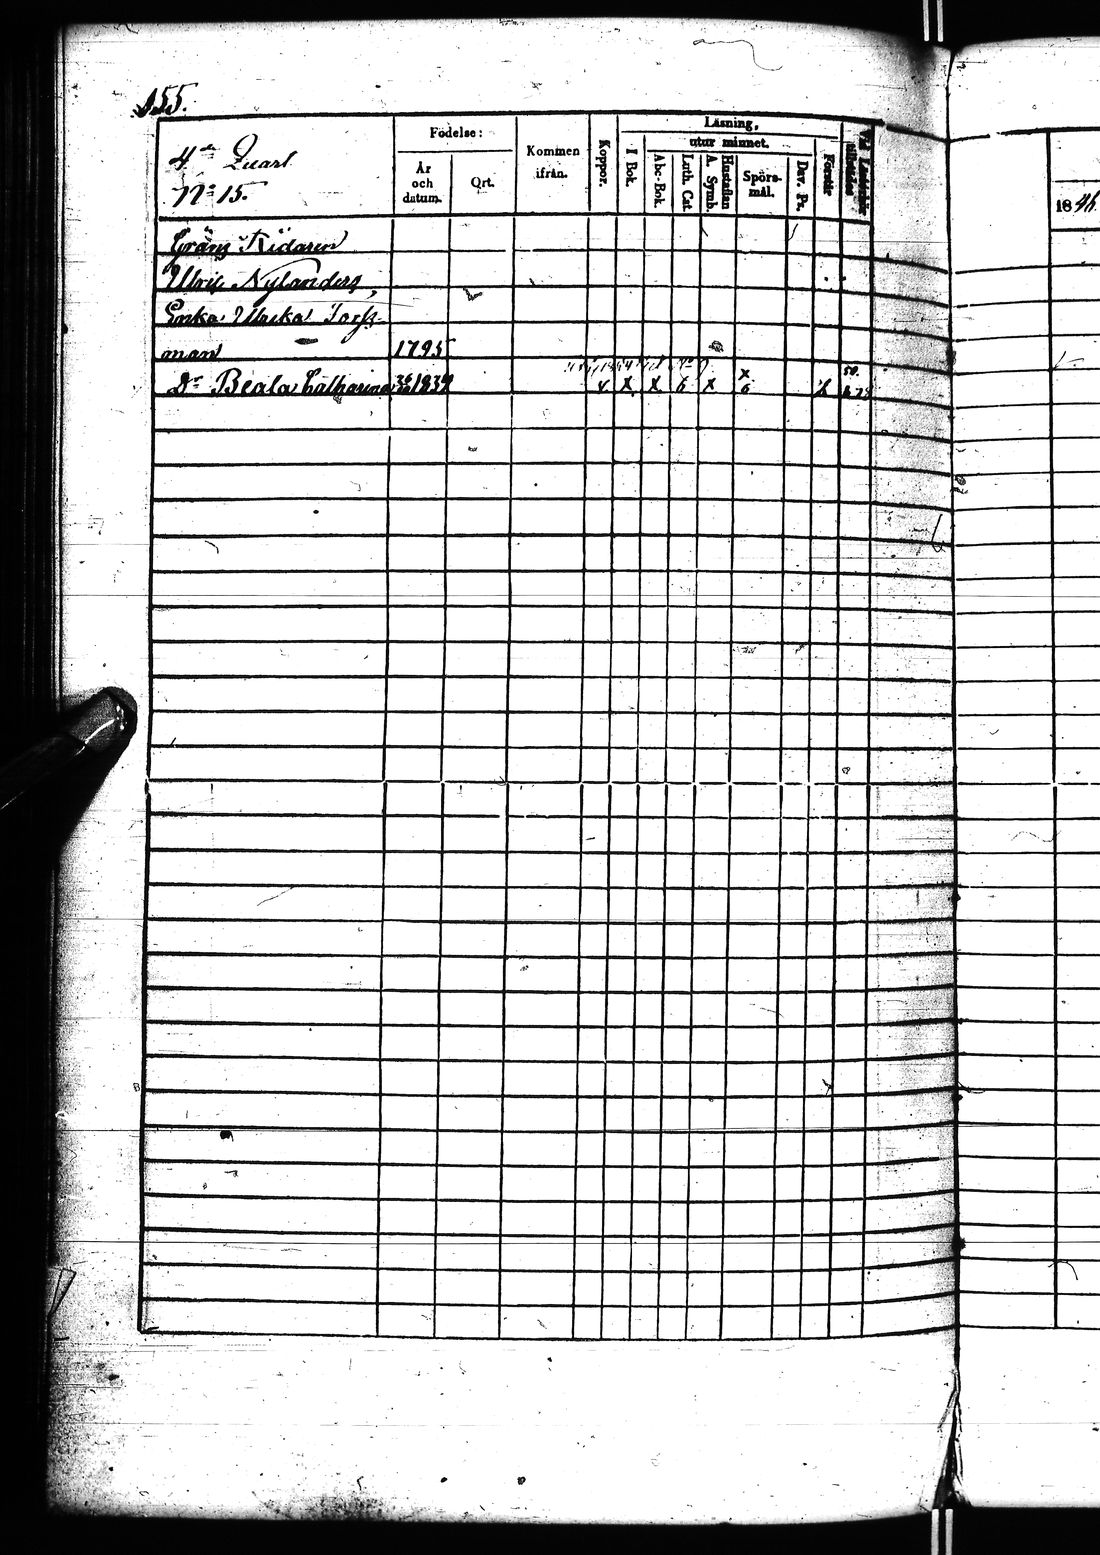 155.
4de Quart
No 15.
Födelse:
År
och
datum.
Qrt.
Kommen
ifrån.
Koppor.
Läsning,
I Bok.
utur minnet.
Abc-Bok.
Luth. Cat.
A. Symb.
Hustaflan
Spörs-
mål.
Dav. Ps.
Förstår
1846
Gräns Ridaren
Ulric Nylanders,
Enka Ulrika Torss-
man 1795
Dr Beata Catharina 1832 x x 6 x x 6